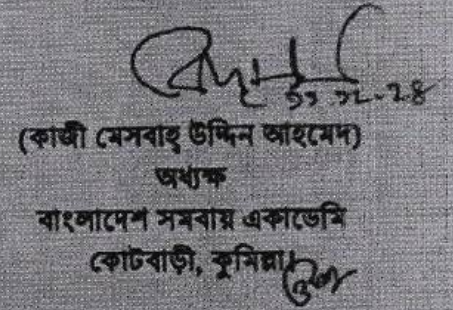 ১১.১২.২৪
(কাজী মেসবাহ উদ্দিন আহমেদ)
অধ্যক্ষ
বাংলাদেশ সমবায় একাডেমি
কোটবাড়ী, কুমিল্লা।